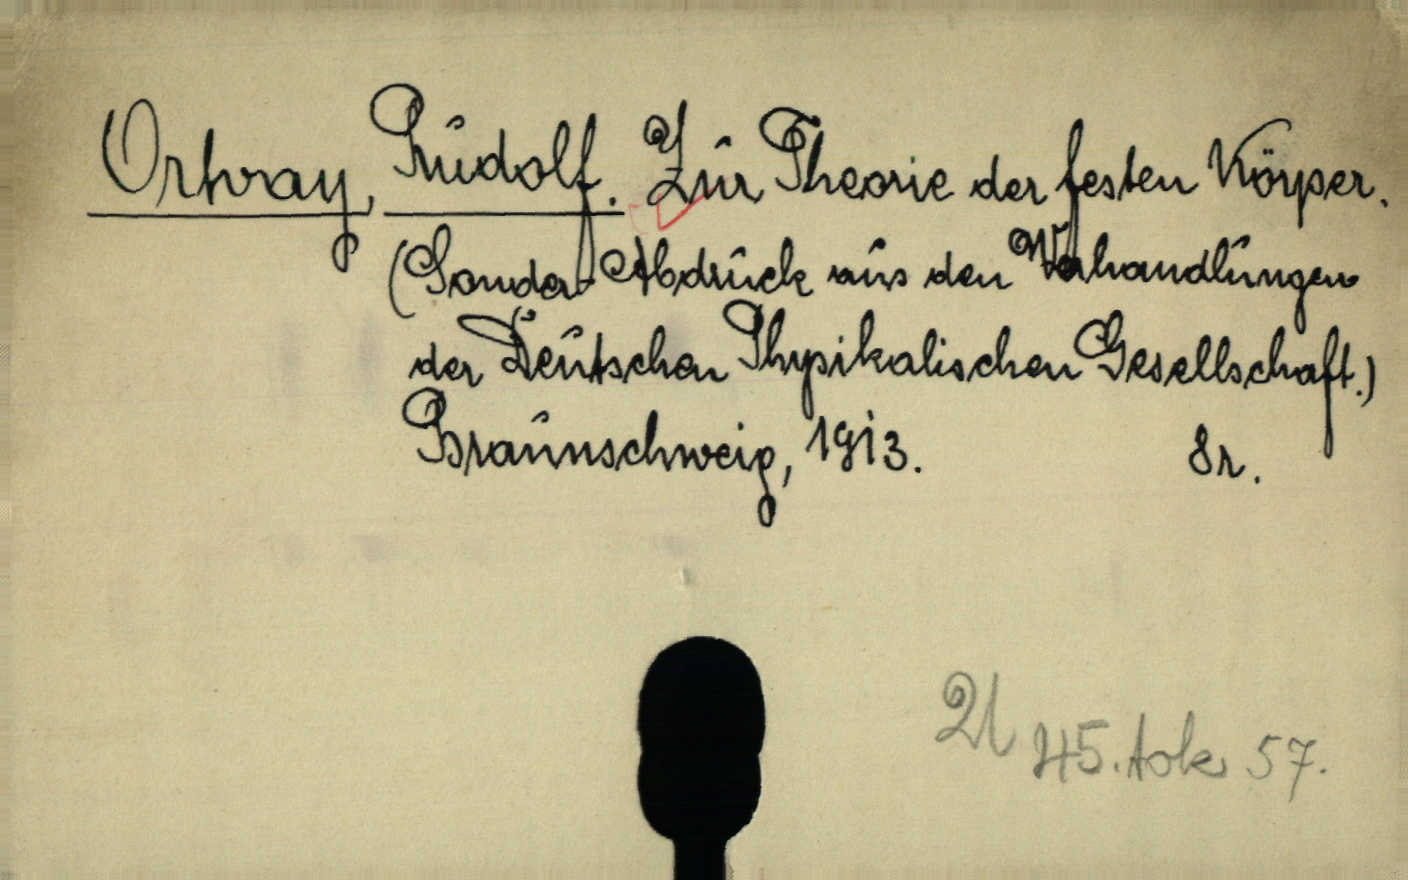 Ortvay, Rudolf. Zur Theorie der festen Körper.
(Sonder-Abdruck aus den Verhandlungen
der Deutschen Physikalischen Gesellschaft.)
Braunschweig, 1913. 8r.
45. tok 57.